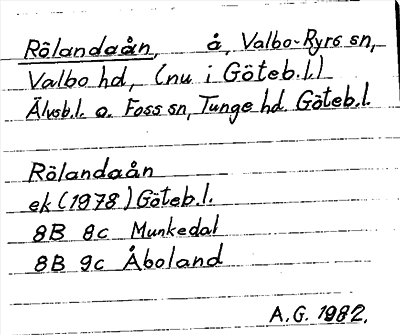 Rölandaån, å, Valbo-Ryrs sn,
Valbo hd, (nu i Göteb.l.)
Älvsb.l. o. Foss sn, Tunge hd. Göteb.l.
Rölandaån
ek (1978) Göteb.l.
8B 8c Munkedal
8B 9c Åboland
A.G. 1982.